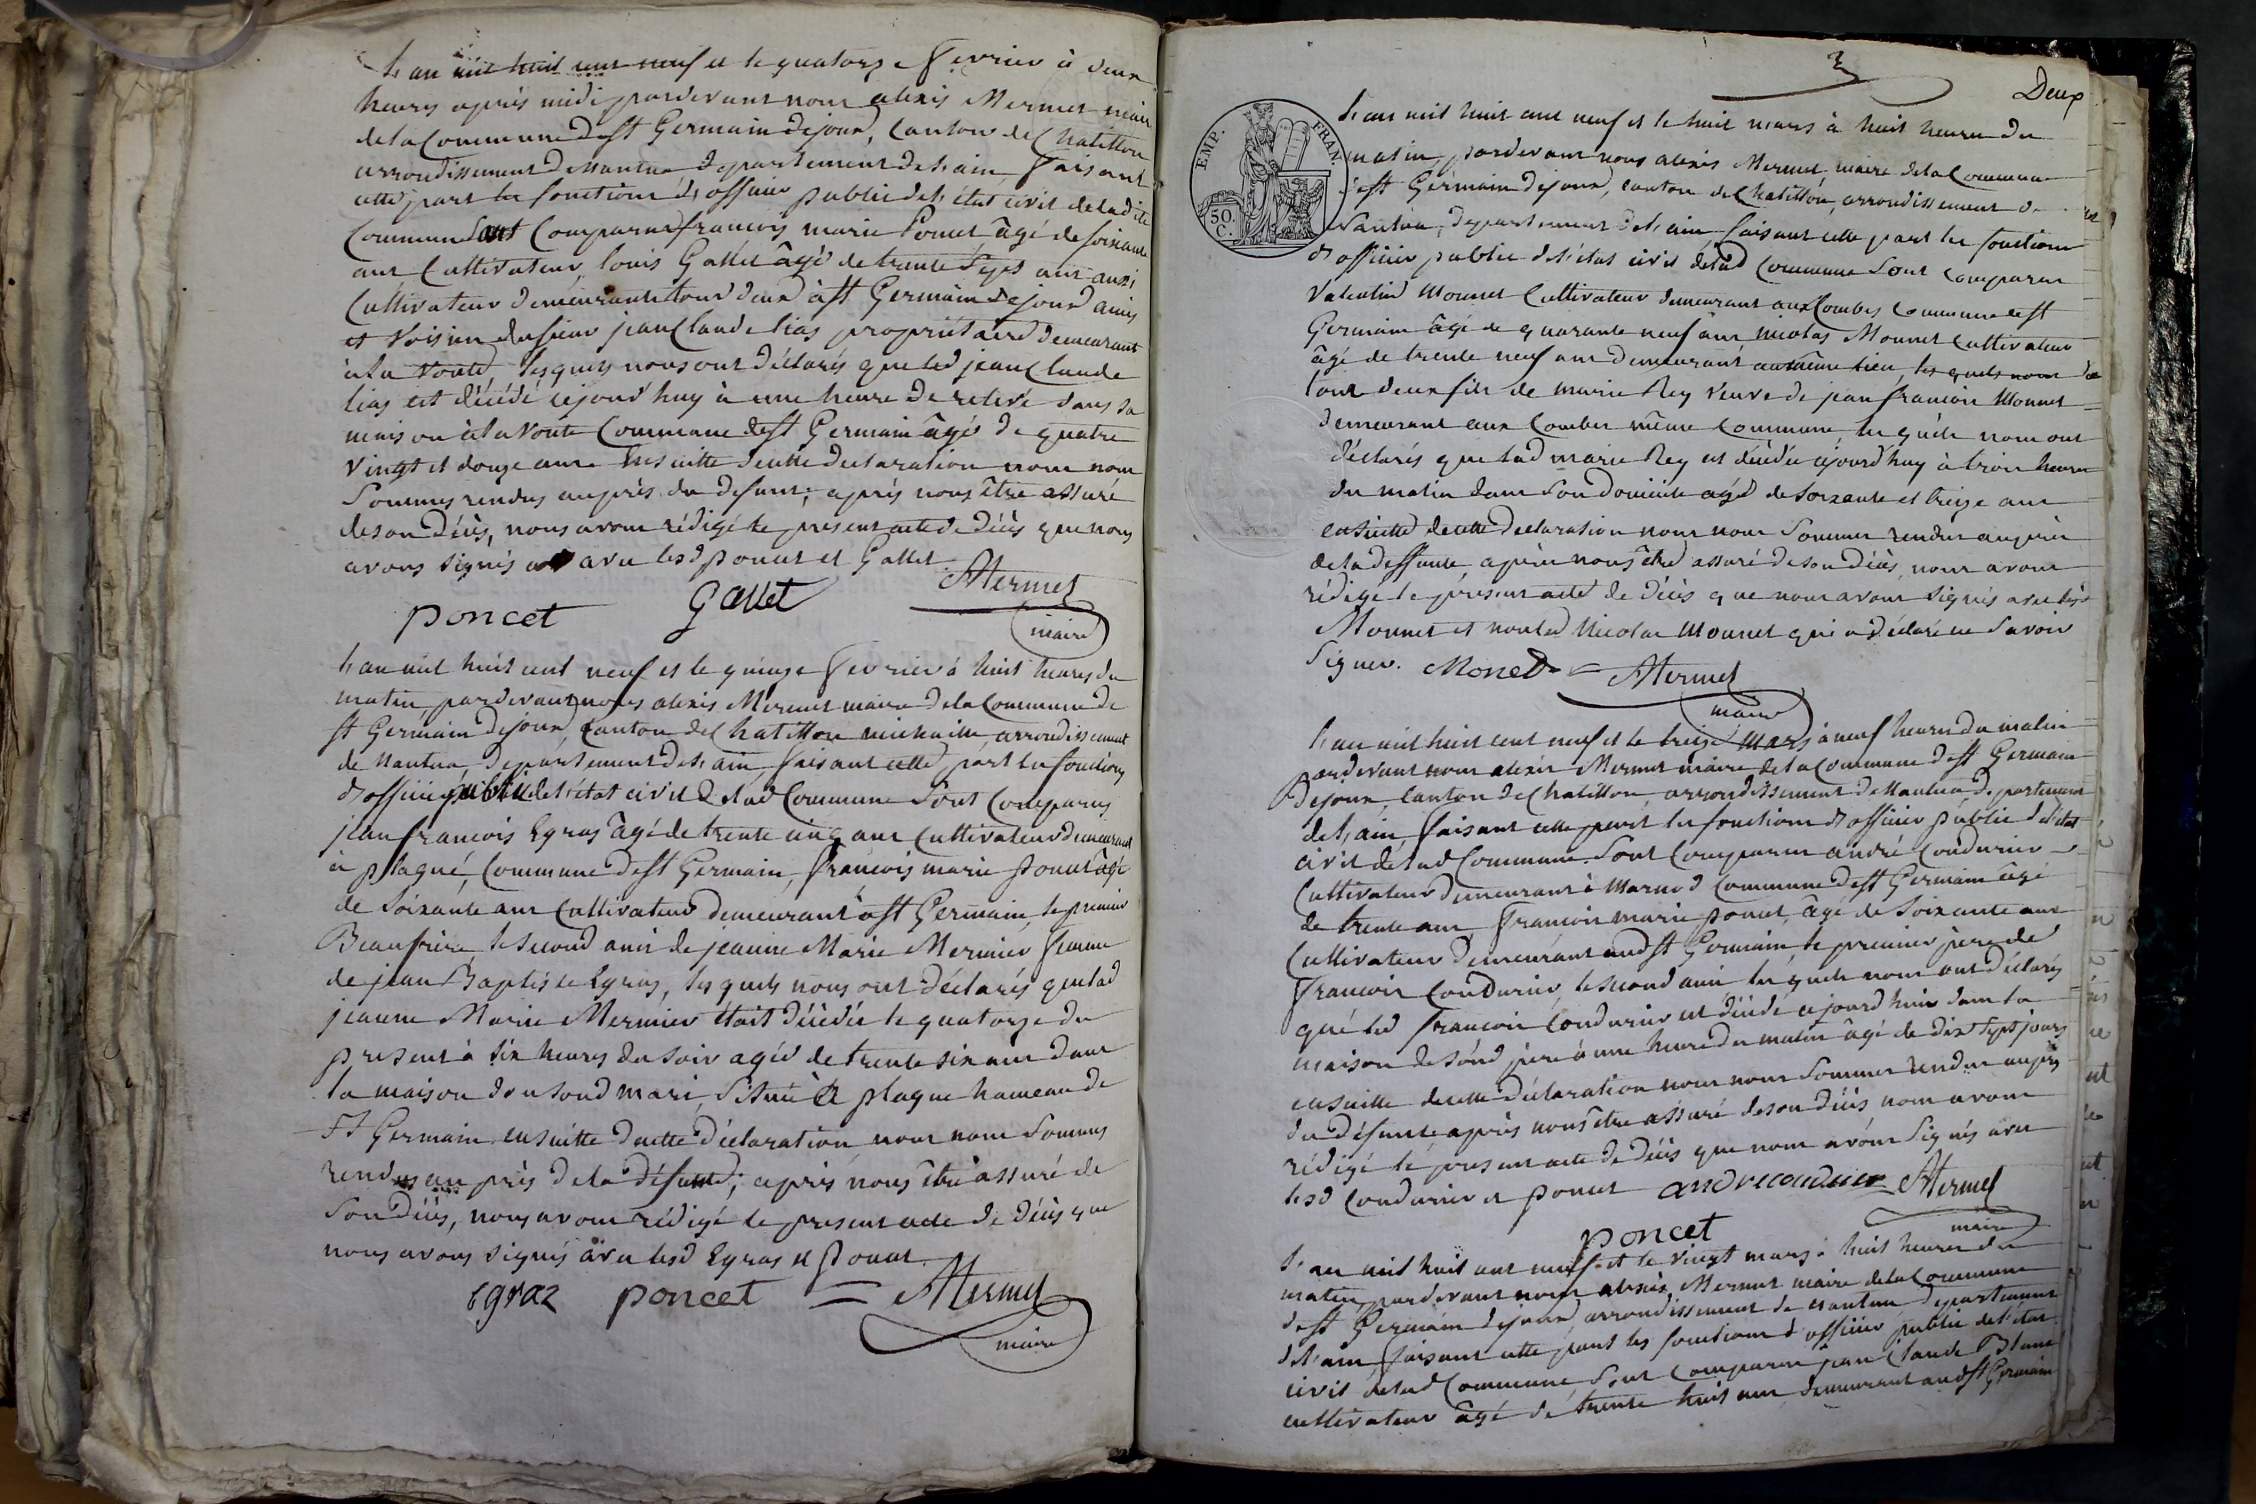 L'an mil huit cent neuf et le quatorze fevrier à deux
heures après midi pardevant nous alexis Mermet maire
de la Commune de st Germain dejoux, Canton de Chatillon
arrondissement de Nantua departement de l'ain faisant
cette part les fonctions d'officier public de l'état civil de ladite
Commune Sont Comparus francois marie Poncet âgé de soixante
ans Cultivateur, louis Gallet âgé de trente sept ans aussi
Cultivateur demeurants tous deux à st Germain dejoux amis
et voisins du sieur jean Claude lias propriétaire demeurant
à la Voute, lesquels nous ont déclarés que led jean Claude
lias est décédé cejourd'huy à une heure de relevé dans sa
maison à la Voute Commune de st Germain âgé de quatre
vingt et douze ans Ensuitte de cette declaration nous nous
Sommes rendus auprès du defunt; après nous être assuré
de son décès, nous avons rédigé le present acte de décès que nous
avons signés avec lesd poncet et Gallet.
poncet Gallet AMermet
maire
L'an mil huit cent neuf et le quinze fevrier à huit heures du
matin pardevant nous alexis Mermet maire de la Commune de
st Germain dejoux, Canton de Chatillon michaille, arrondissement
de Nantua, departement de l'ain, faisant cette part les fonctions
d'officier public de l'état civil de lad Commune Sont Comparus
jean francois Egras âgé de trente cinq ans Cultivateur demeurant
à plagne, Commune de st Germain, francois marie poncet âgé
de Soixante ans Cultivateur demeurant à st Germain, le premier
Beaufrère, le second ami de jeanne Marie Mermier femme
de jean Baptiste Egras, lesquels nous ont déclarés que lad
jeanne Marie Mermier était décédée le quatorze du
present à six heures du soir agée de trente six ans dans
la maison de sond mari, Située à plagne hameau de
St Germain. ensuitte de cette déclaration nous nous Sommes
rendus auprès de la défunte; après nous être assuré de
son décès, nous avons rédigé le present acte de décès que
nous avons signés avec lesd Egras et poncet.
egraz poncet = AMermet
maire
3
Deux
EMP. FRAN.
50. C.
L'an mil huit cent neuf et le huit mars à huit heures du
matin, pardevant nous alexis Mermet, maire de la Commune
de st Germain dejoux, canton de Chatillon, arrondissement de
Nantua, departement de l'ain, faisant cette part les fonctions
d'officier public de l'état civil de lad Commune Sont Comparus
Valentin Monnet Cultivateur demeurant aux Combes Commune de st
Germain âgé de quarante neuf ans, nicolas Monnet Cultivateur
âgé de trente neuf ans demeurant au même lieu, les quels nous
tous deux fils de marie Rey veuve de jean francois Monnet
demeurant aux Combes même Commune, les quels nous ont
déclarés que lad marie Rey est décédée cejourd'huy à trois heures
du matin dans son domicile agée de soixante et treize ans
ensuitte de cette declaration nous nous Sommes rendus auprès
de la deffunte, après nous être assuré de son décès, nous avons
rédigé le present acte de décès que nous avons signés avec led
Monnet et non led Nicolas Monnet qui a déclaré ne savoir
signer. Monet = AMermet
maire
L'an mil huit cent neuf et le treize mars à neuf heures du matin
pardevant nous alexis Mermet maire de la Commune de st Germain
dejoux, Canton de Chatillon, arrondissement de Nantua, departement
de l'ain faisant cette part les fonctions d'officier public de l'état
civil de lad Commune. Sont Comparus andré Condurier
Cultivateur demeurant à Marnod Commune de st Germain âgé
de trente ans francois marie poncet, âgé de Soixante ans
Cultivateur demeurant aud st Germain, le premier père de
francois Condurier, le second ami les quels nous ont déclarés
que led francois Condurier est décédé cejourd'huis dans la
maison de sond père à une heure du matin âgé de dix sept jours
ensuitte de cette declaration nous nous Sommes rendus auprès
du défunt, après nous être assuré de son décès, nous avons
rédigé le present acte de décès que nous avons signés avec
lesd Condurier et poncet andrecondurier = AMermet
poncet maire
L'an mil huit cent neuf et le vingt mars à huit heures du
matin, pardevant nous alexis Mermet maire de la Commune
de st Germain dejoux, arrondissement de Nantua departement
de l'ain faisant cette part les fonctions d'officier public de l'état
civil de lad Commune, Sont Comparus jean Claude Blanc
cultivateur âgé de trente huit ans demeurant aud st Germain